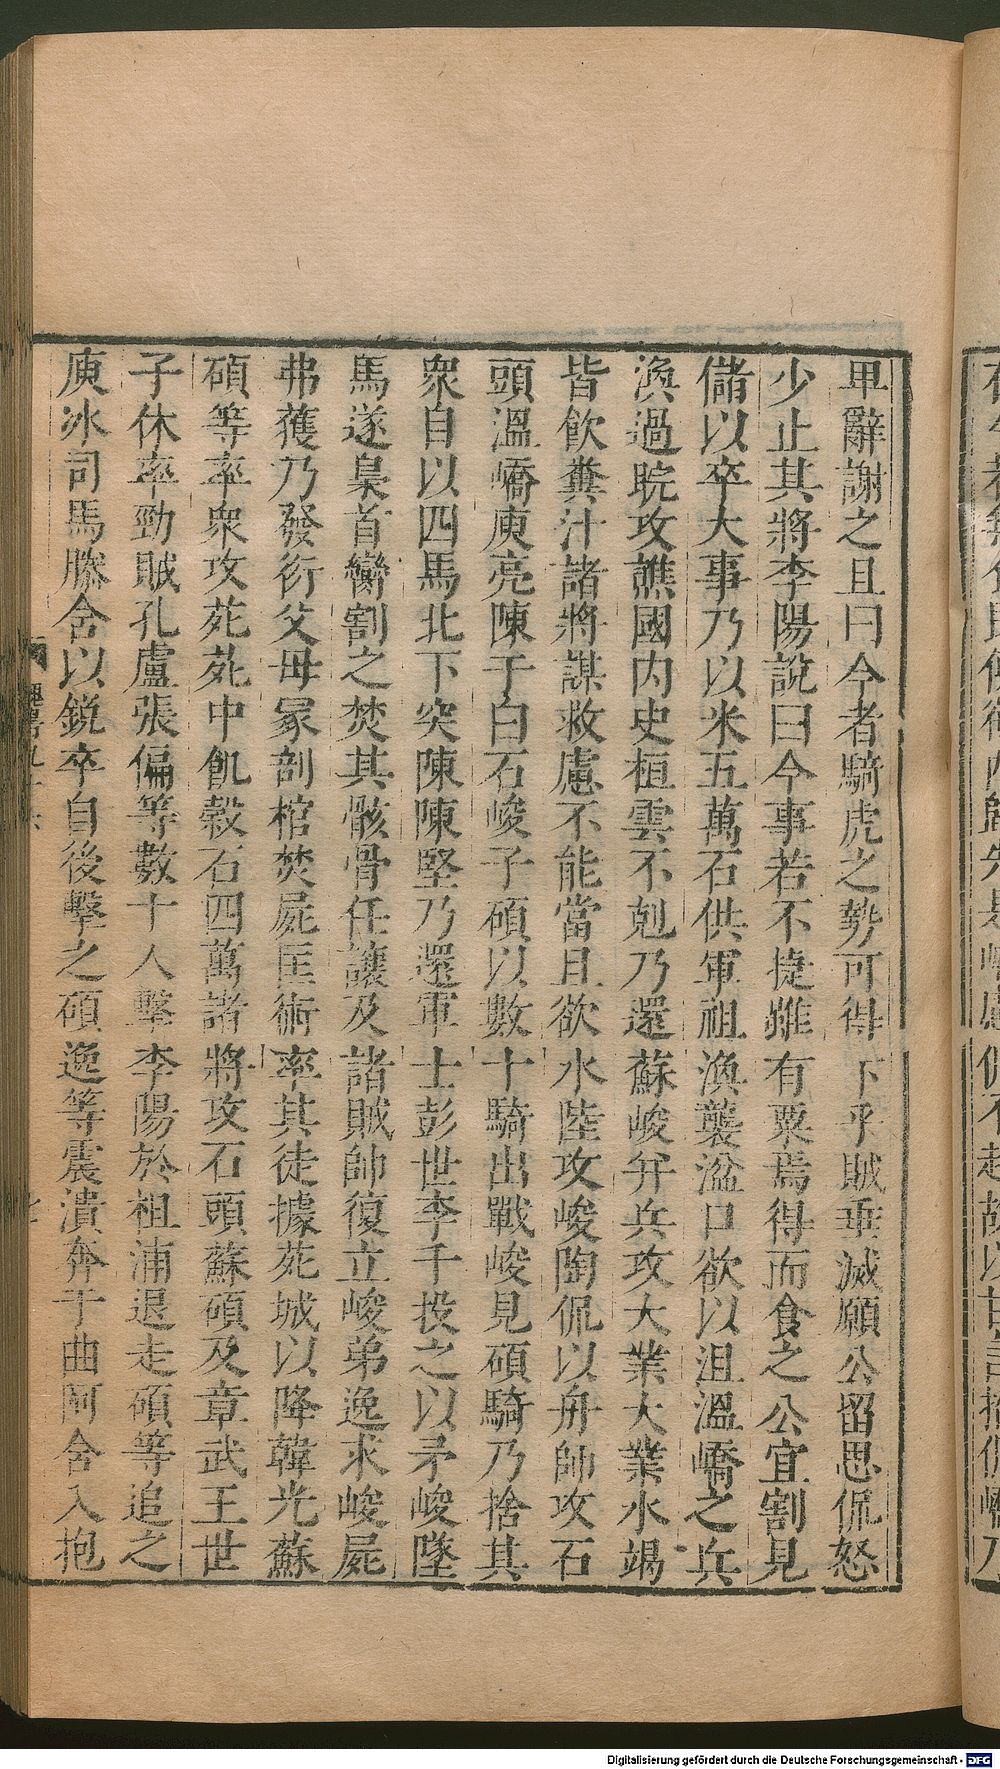 卑辭謝之且曰今者騎虎之勢可得下乎賊垂滅願公留思侃怒
少止其將李陽說曰今事若不捷雖有粟焉得而食之公宜割見
儲以卒大事乃以米五萬石供軍祖渙襲湓口欲以沮溫嶠之兵
渙過晥攻譙國內史桓雲不剋乃還蘇峻并兵攻大業大業水竭
皆飲糞汁諸將謀救慮不能當且欲水陸攻峻陶侃以舟師攻石
頭溫嶠庾亮陳于白石峻子碩以數十騎出戰峻見碩騎乃捨其
衆自以四馬北下突陳陳堅乃還軍士彭世李千投之以矛峻墜
馬遂梟首臠割之焚其骸骨任讓及諸賊帥復立峻弟逸求峻屍
弗獲乃發衍父母冢剖棺焚屍匡術率其徒據苑城以降韓光蘇
碩等率衆攻苑苑中飢穀石四萬諸將攻石頭蘇碩及章武王世
子休率勁賊孔盧張偏等數十人擊李陽於祖浦退走碩等追之
庾冰司馬滕含以銳卒自後擊之碩逸等震潰奔于曲阿含入抱
Digitalisierung gefördert durch die Deutsche Forschungsgemeinschaft - DFG